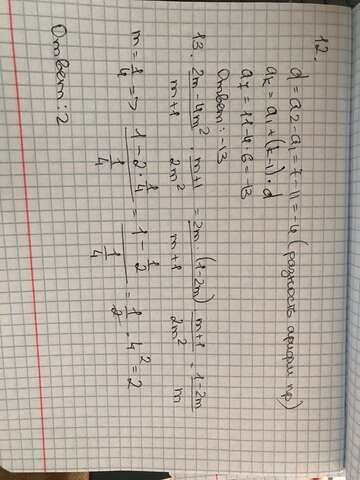 12.
d = a2 - a1 = 7 - 11 = -4 (разность арифм пр)
aк = a1 + (к-1) · d
a7 = 11 - 4 · 6 = -13
Ответ: -13
13. (2m - 4m²)/(m+1) · (m+1)/(2m²) = 2m · (1-2m)/(m+1) · (m+1)/(2m²) = (1-2m)/m
m = 1/4 => (1 - 2 · 1/4)/(1/4) = (1 - 1/2)/(1/4) = 1/2 · 4² = 2
Ответ: 2